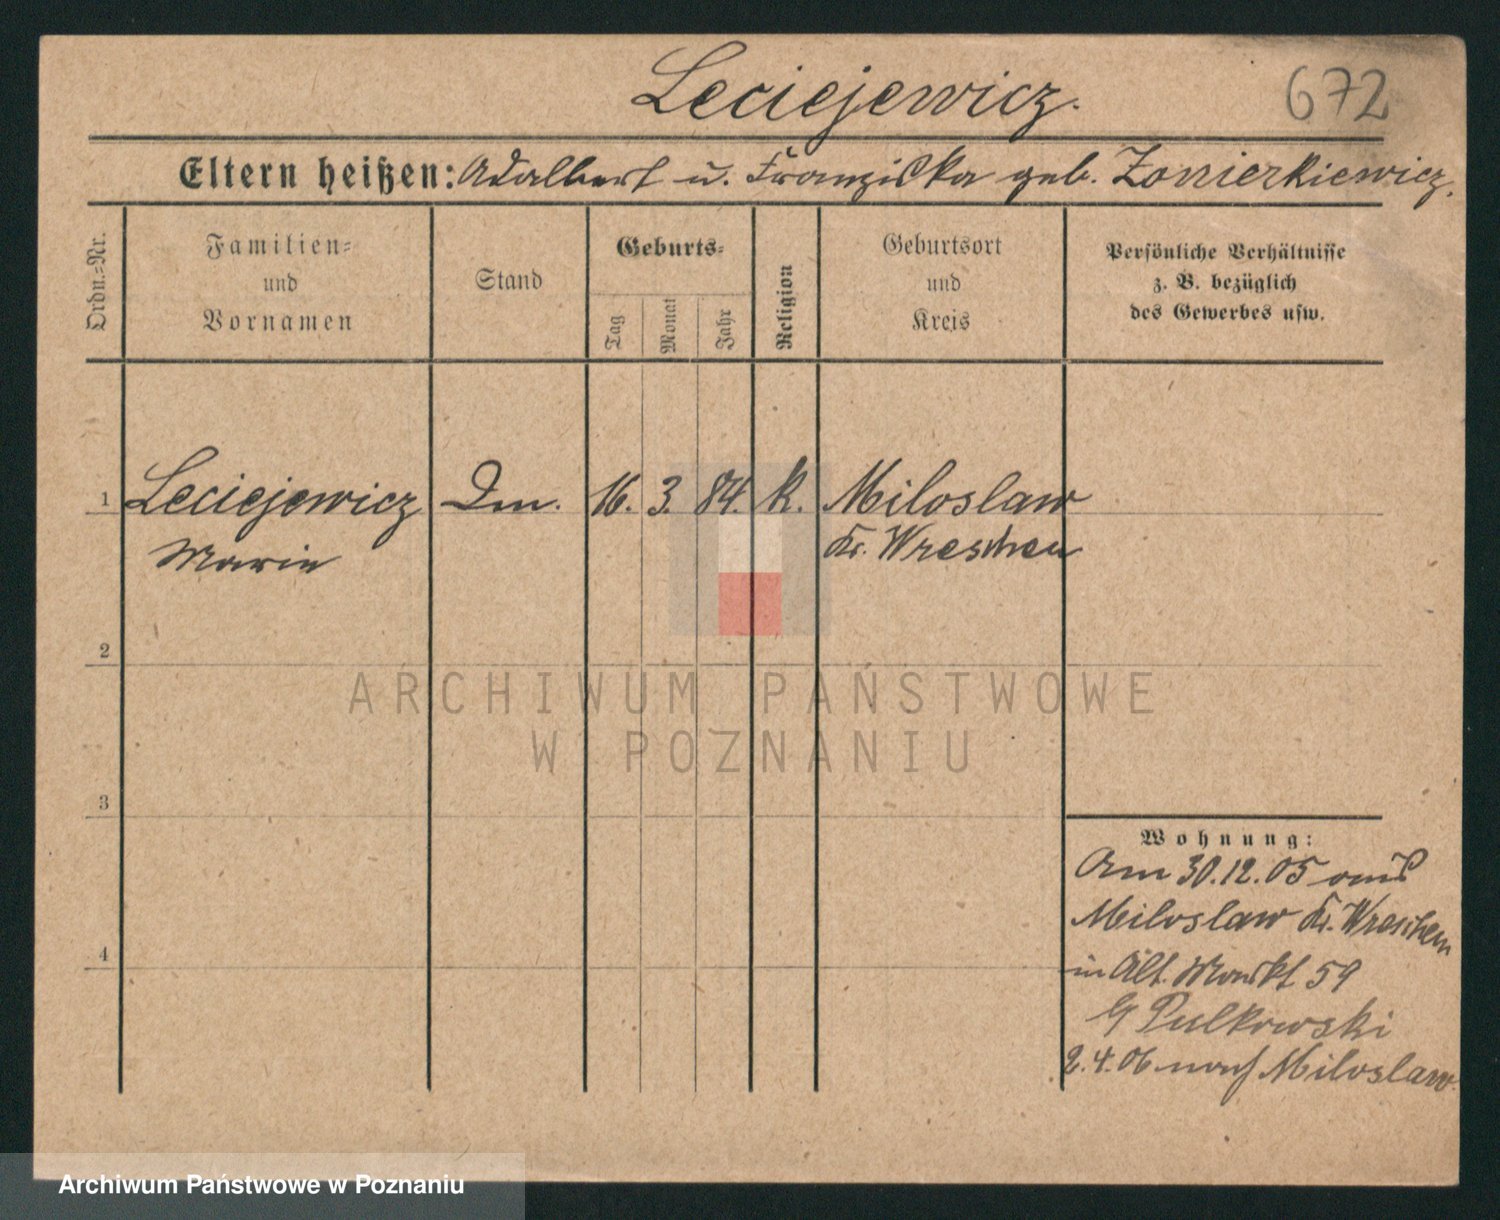 Leciejewicz.
672
Eltern heißen: Adalbert u. Franziska geb. Zonierkiewicz.
Ordn.=Nr.
Familien=
und
Vornamen
Stand
Geburts=
Tag
Monat
Jahr
Religion
Geburtsort
und
Kreis
Persönliche Verhältnisse
z. B. bezüglich
des Gewerbes usw.
1 Leciejewicz Dm. 16. 3. 84. k. Miloslaw
Marie Kr. Wreschen
2
ARCHIWUM PAŃSTWOWE
W POZNANIU
3
Wohnung:
Am 30.12.05 aus
Miloslaw Kr. Wreschen
4
in Alt. Markt 59
Pulkowski
2.4.06 nach Miloslaw.
Archiwum Państwowe w Poznaniu